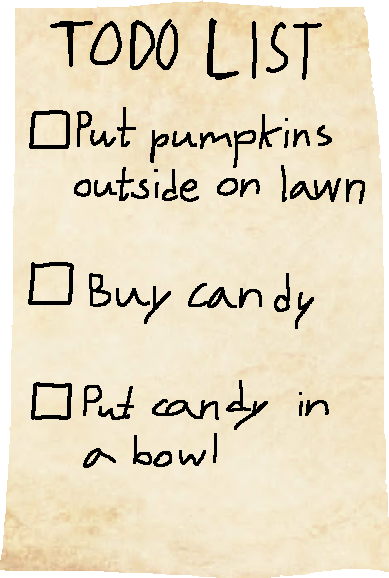 TODO LIST
Put pumpkins
outside on lawn
Buy candy
Put candy in
a bowl